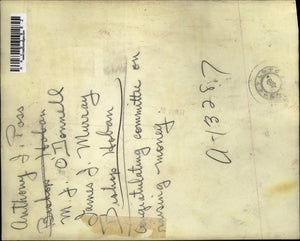 Anthony J. Poss
Bishop Hoban
M. J. O'Donnell
James J. Murray
Bishop Hoban
Congratulating committee on
raising money
a-13287